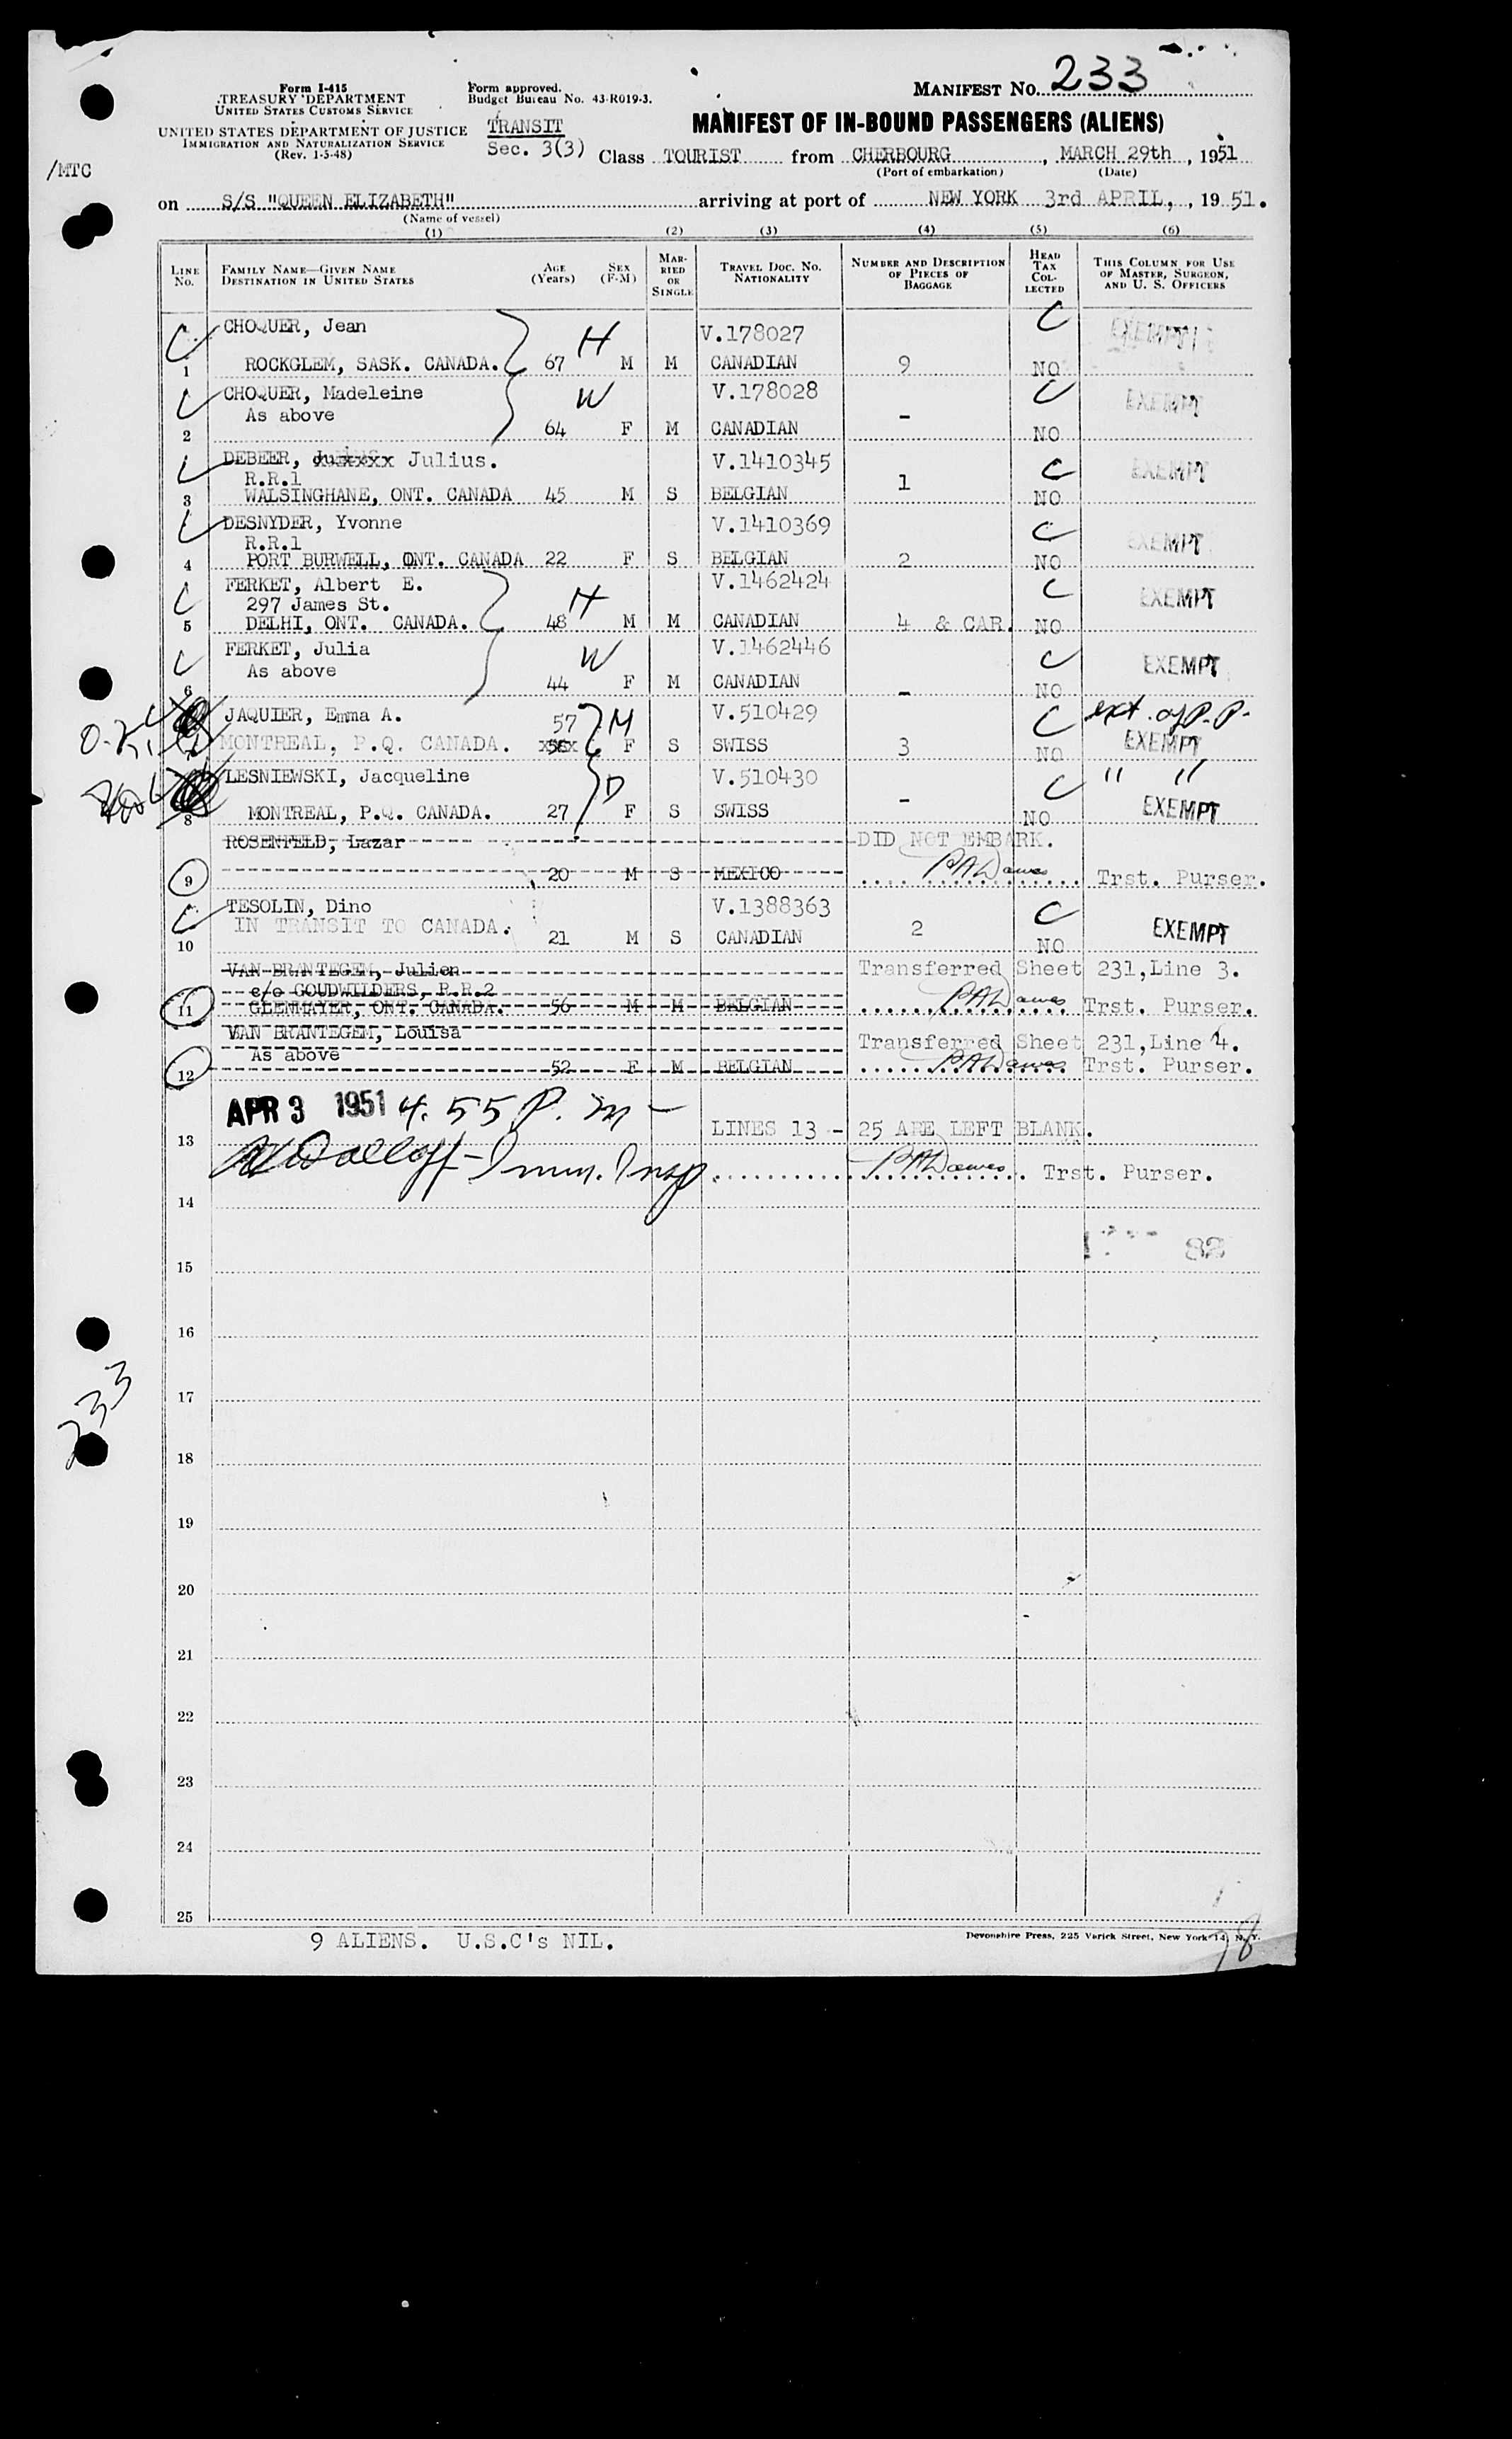 Form I-415
TREASURY DEPARTMENT
UNITED STATES CUSTOMS SERVICE
UNITED STATES DEPARTMENT OF JUSTICE
IMMIGRATION AND NATURALIZATION SERVICE
(Rev. 1-5-48)
/MTC
Form approved.
Budget Bureau No. 43-R019-3.
TRANSIT
Sec. 3(3)
MANIFEST NO. 233
MANIFEST OF IN-BOUND PASSENGERS (ALIENS)
Class TOURIST from CHERBOURG, MARCH 29th, 1951
(Port of embarkation) (Date)
on S/S "QUEEN ELIZABETH" arriving at port of NEW YORK 3rd APRIL, 1951.
(Name of vessel)
(1) (2) (3) (4) (5) (6)
LINE NO. FAMILY NAME—GIVEN NAME DESTINATION IN UNITED STATES AGE (Years) SEX (F-M) MARRIED OR SINGLE TRAVEL DOC. NO. NATIONALITY NUMBER AND DESCRIPTION OF PIECES OF BAGGAGE HEAD TAX COLLECTED THIS COLUMN FOR USE OF MASTER, SURGEON, AND U. S. OFFICERS
CHOQUER, Jean H V.178027 C EXEMPT
1 ROCKGLEM, SASK. CANADA. 67 M M CANADIAN 9 NO
CHOQUER, Madeleine W V.178028 C EXEMPT
As above
2 64 F M CANADIAN - NO
DEBEER, Juxxxx Julius. V.1410345 C EXEMPT
R.R.1 1
3 WALSINGHANE, ONT. CANADA 45 M S BELGIAN NO
DESNYDER, Yvonne V.1410369 C EXEMPT
R.R.1
4 PORT BURWELL, ONT. CANADA 22 F S BELGIAN 2 NO
FERKET, Albert E. H V.1462424 C EXEMPT
297 James St.
5 DELHI, ONT. CANADA. 48 M M CANADIAN 4 & CAR. NO
FERKET, Julia W V.1462446 C EXEMPT
As above
6 44 F M CANADIAN - NO
JAQUIER, Emma A. 57 M V.510429 C ext. of P.P.
MONTREAL, P.Q. CANADA. xxx F S SWISS 3 NO EXEMPT
LESNIEWSKI, Jacqueline D V.510430 C " "
8 MONTREAL, P.Q. CANADA. 27 F S SWISS - NO EXEMPT
ROSENFELD, Lazar DID NOT EMBARK.
9 20 M S MEXICO PADawes Trst. Purser.
TESOLIN, Dino V.1388363 C EXEMPT
IN TRANSIT TO CANADA. 2
10 21 M S CANADIAN NO
VAN BRANTEGEM, Julien Transferred Sheet 231,Line 3.
c/o GOUDWILDERS, R.R.2
11 GLENMAYER, ONT. CANADA. 56 M M BELGIAN PADawes Trst. Purser.
VAN BRANTEGEM, Louisa Transferred Sheet 231,Line 4.
As above
12 52 F M BELGIAN PADawes Trst. Purser.
APR 3 1951 4.55 P.m —
13 LINES 13 - 25 ARE LEFT BLANK.
Imm. Insp. PADawes Trst. Purser.
14
82
15
16
17
233
18
19
20
21
22
23
24
25
9 ALIENS. U.S.C's NIL.
Devonshire Press, 225 Varick Street, New York 14, N.Y.